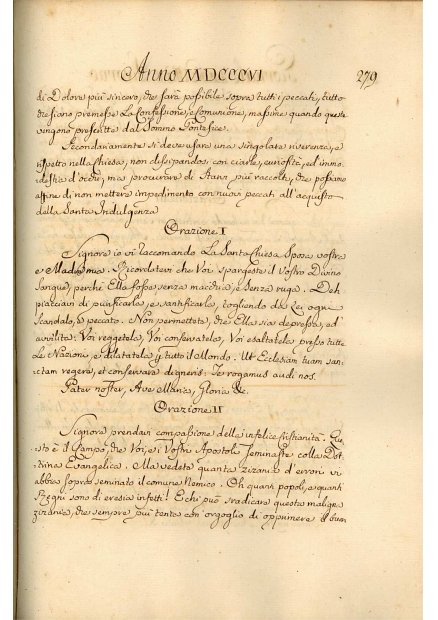 Anno MDCCCVI
279
di Dolore più sincero, che sarà possibile sopra tutti i peccati, tutto
che siano premesse La Confessione, e Comunione, massime quando queste
vengono prescritte dal Sommo Pontefice.
Secondariamente si deve usare una singolare riverenza, e
rispetto nella Chiesa, non dissipandosi con ciarle, curiosità, ed immo-
destia d'occhi, ma procurare di stare più raccolti, che possiamo
affine di non mettere impedimento con nuovi peccati all'acquisto
della Santa Indulgenza
Orazione I
Signore io vi raccomando La Santa Chiesa Sposa vostra
e Madre mia. Ricordatevi che Voi spargeste il Vostro Divino
Sangue, perchè Ella fosse senza macchia, e senza ruga. Deh
piacciavi di purificarla, e santificarla, togliendo da Lei ogni
scandalo, e peccato. Non permettete, che Ella sia depressa, ed
avvilita: Voi reggetela, Voi conservatela, Voi esaltatela presso tutte
Le Nazioni, e dilatatela p tutto il Mondo. Ut Ecclesiam tuam san-
ctam regere, et conservare digneris: Te rogamus audi nos.
Pater noster, Ave Maria, Gloria &c.
Orazione II
Signore prendavi compassione della infelice cristianità. Que-
sto è il Campo, che Voi, e i Vostri Apostoli seminaste colla Dot-
trina Evangelica. Ma vedete quanta zizania d'errori vi
abbia sopra seminato il comune Nemico. Oh quanti popoli, e quanti
Regni sono di eresia infetti! E chi può sradicare questa maligna
zizania, che sempre più tenta con orgoglio di opprimere il buon